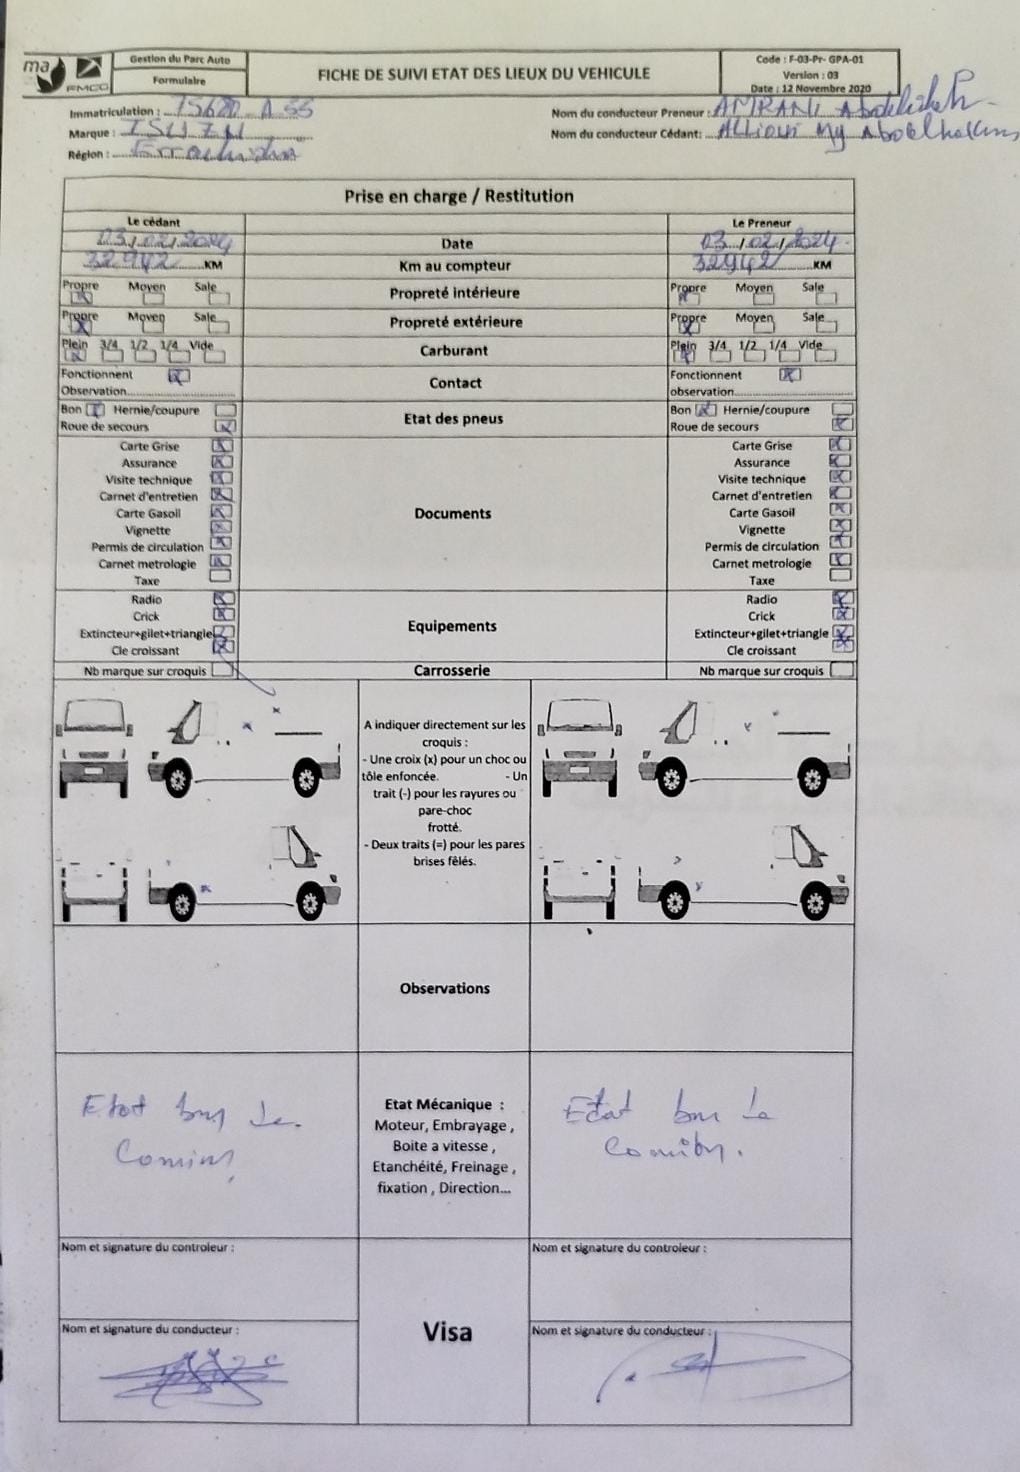 ma
FMCG
Gestion du Parc Auto
Formulaire
FICHE DE SUIVI ETAT DES LIEUX DU VEHICULE
Code : F-03-Pr- GPA-01
Version : 03
Date : 12 Novembre 2020
Immatriculation : A 55
Marque : ISUZU
Région : Errachidia
Nom du conducteur Preneur : AMRANI
Nom du conducteur Cédant: My Abdelhakim
Prise en charge / Restitution
Le cédant
Le Preneur
03/02/2024 Date 03/02/2024
32942 KM Km au compteur 32942 KM
Propre Moyen Sale Propreté intérieure Propre Moyen Sale
Propre Moyen Sale Propreté extérieure Propre Moyen Sale
Plein 3/4 1/2 1/4 Vide Carburant Plein 3/4 1/2 1/4 Vide
Fonctionnent Contact Fonctionnent
Observation observation
Bon Hernie/coupure Etat des pneus Bon Hernie/coupure
Roue de secours Roue de secours
Carte Grise Carte Grise
Assurance Assurance
Visite technique Visite technique
Carnet d'entretien Carnet d'entretien
Carte Gasoil Documents Carte Gasoil
Vignette Vignette
Permis de circulation Permis de circulation
Carnet metrologie Carnet metrologie
Taxe Taxe
Radio Radio
Crick Crick
Extincteur+gilet+triangle Equipements Extincteur+gilet+triangle
Cle croissant Cle croissant
Nb marque sur croquis Carrosserie Nb marque sur croquis
A indiquer directement sur les
croquis :
- Une croix (x) pour un choc ou
tôle enfoncée. - Un
trait (-) pour les rayures ou
pare-choc
frotté.
- Deux traits (=) pour les pares
brises fêlés.
Observations
Etat
Etat
Etat Mécanique :
Moteur, Embrayage ,
Boite a vitesse ,
Etanchéité, Freinage ,
fixation , Direction...
Nom et signature du controleur :
Nom et signature du controleur :
Visa
Nom et signature du conducteur :
Nom et signature du conducteur :